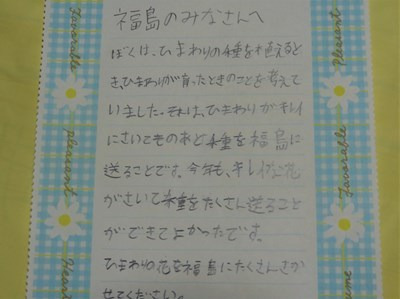 福島のみなさんへ
ぼくは、ひまわりの種を植えると
き、ひまわりが育ったときのことを考えて
いました。それは、ひまわりがキレイ
にさいてそのあと種を福島に
送ることです。今年も、キレイな花
がさいて種をたくさん送ること
ができてよかったです。
ひまわりの花を福島にたくさんさか
せてください。
Favorable
pleasant
Heart
Pleasant
Favorable